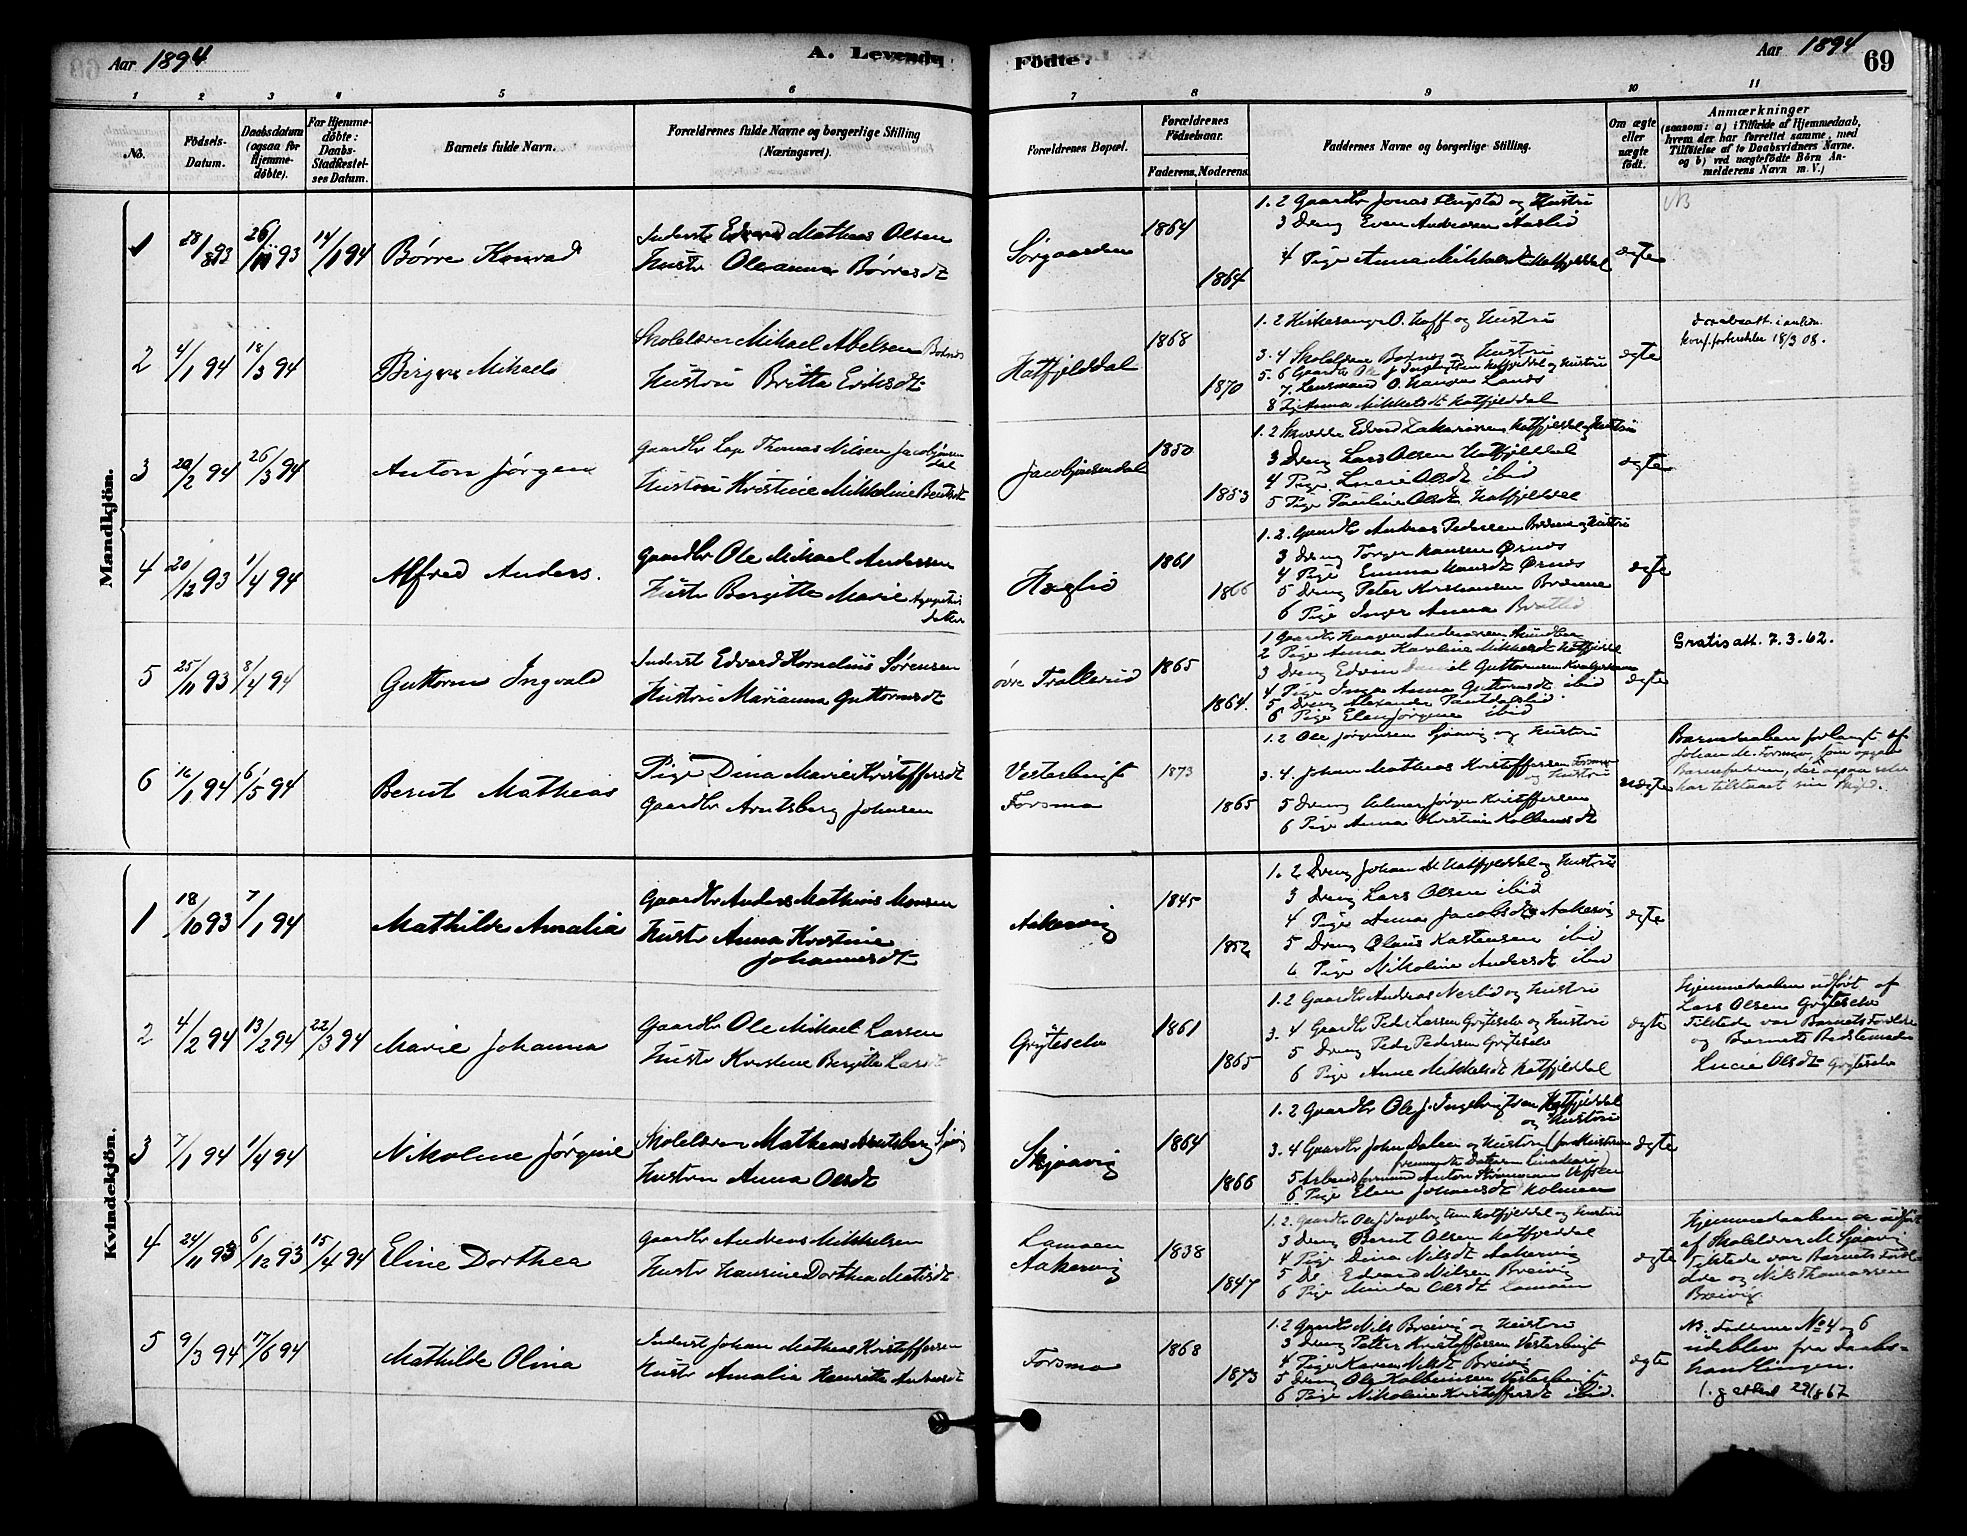 Aar 1894
A. Levende
Födte.
Aar 1894
69
1 2 3 4 5 6 7 8 9 10 11
No.
Födsels-Datum.
Daabsdatum (ogsaa for Hjemme-döbte).
For Hjemme-döbte: Daabs-Stadfæstel-ses Datum.
Barnets fulde Navn.
Forældrenes fulde Navne og borgerlige Stilling (Næringsvei).
Forældrenes Bopæl.
Forældrenes Födselsaar.
Faderens. Moderens.
Faddernes Navne og borgerlige Stilling.
Om ægte eller uægte födt.
Anmærkninger
(saasom: a) i Tilfælde af Hjemmedaab, hvem der har forrettet samme, med Tilföielse af to Daabsvidners Navne. og b) ved uægtefödte Börn An-melderens Navn m. V.)
Mandkjön.
1 28/8 93 26/11 93 14/1 94 Børre Konrad
Inderst Edvard Mathias Olsen
Hustr Oleanna Børresdt
Sørgaarden
1864
1864
1. 2 Gaardbr Jonas og Hustru
3 Dreng Even Andersen Aaslid
4 Pige Anna Mikkelsdt Hatfjelddal
ægte
NB
2 4/1 94 18/3 94 Birger Mikael
Skolelærer Mikael Abelsen
Hustru Britta Eriksdt.
Hatfjelddal
1868
1870
1. 2 Kirkesanger O. Hoff og Hustru
3. 4 Skolelærer og Hustru
5. 6 Gaardbr Ole J Ingebrigtsen Hatfjeldal og Hustru
7. Lensmand O. Hansen
8 Anna Mikkelsdt Hatfjelddal
ægte
18/3 08.
3 20/2 94 26/3 94 Anton Jørgen
Gaardbr Lap Thomas Nilsen Jacobjønsendal
Hustru Kristine Mikkeline Bentsdt
Jacobjønsendal
1850
1853
1. 2 Edvard Zakariasen Hatfjeldal og Hustru
3 Dreng Lars Olsen Hatfjelddal
4 Pige Lucie Olsdt ibid
5 Pige Pauline Olsdt Hatfjeldal
ægte
4 20/12 93 1/4 94 Alfred Anders.
Gaardbr Ole Mikael Andersen
Hustr Bergitte Marie
datter
1861
1866
1. 2. Gaardbr Andreas Pedersen og Hustru
3 Dreng Torger Hansen Ørnes
4 Pige Emma Hansdt Ørnes
5 Dreng Peter Kristiansen
6 Pige Inger Anna
ægte
5 25/11 93 8/4 94 Guttorm Ingvald
Inderst Edvard Kornelius Sørensen
Hustru Marianna Guttormsdt
øvre
1865
1864.
1 Gaardbr
2 Pige Anna Karoline Mikkelsdt Hatfjeldal
3 Dreng Edvin Daniel Guttormsen
4 Pige Inger Anna Guttormsdt ibid
5 Dreng Alexander
6 Pige Elen Jørgine ibid
ægte
Gratisatt. 7.3.62.
6 16/1 94 6/5 94 Bernt Mathias
Pige Dina Marie Kristoffersdt
Gaardbr Arntsberg Johnsen
Vesterbugt
Forsmo
1873
1865
1. 2 Ole Jørgensen og Hustru
3. 4. Johan Mathias Kristoffersen Forsmo og Hustru
5 Dreng Jørgen Kristoffersen
6 Pige Anna Kristine
uægte
Barnedaaben forlangt af
Johan M. Forsmo, som opgav
Barnefaderen, der ogsaa selv
har tilstaaet sin Skyld.
Kvindekjön.
1 18/10 93 7/1 94 Mathilde Amalia
Gaardbr Anders Mathias Monsen
Hustr Anna Kristine
Johannesdt
Aakervig
1845
1852
1. 2 Dreng Johan M Hatfjelddal og Hustru
3 Dreng Lars Olsen ibid
4 Pige Anna Jacobsdt Aakervig
5 Dreng Olaus Kastensen ibid
6 Pige Nikoline Andersdt ibid
ægte
2 4/2 94 13/2 94 22/3 94 Marie Johanna
Gaardbr Ole Mikael Larsen
Hustr Kristine Bergitte Larsdt
Grytselv
1861
1865
1. 2 Gaardbr Andreas Neslid og Hustru
3. 4 Gaardbr Peder Larsen Grytselv og Hustru
5 Dreng Peder Pedersen Grytselv
6 Pige Anne Mikkelsdt Hatfjelddal
ægte
Hjemmedaaben udført af
Lars Olsen Grytselv
Tilstede var Barnets Forældre
og Barnets Bedstemoder
Lucie Olsdt Grytselv
3 7/1 94 1/4 94 Nikoline Jørgine
Skolelærer Mathias Arntsberg
Hustru Anna Olsdt
Skjaavig
1864
1866
1. 2 Gaardbr Ole J. Ingebrigtsen Hatfjelddal
og Hustru
3. 4 Gaardbr John Dalen og Hustru (for Hustruen
fremmødte Datteren
5 Arbeidsformand Anton Vefsen
6 Pige Elen Johansdt Holmen
ægte
4 24/11 93 6/12 93 15/4 94 Eline Dorthea
Gaardbr Andreas Mikkelsen
Hustr Hansine Dorthea
Lamoen
Aakervig
1838
1847
1. 2. Gaardbr Ole J Ingebrigtsen Hatfjeldal og Hustru
3 Dreng Bernt Olsen Hatfjeldal
4 Pige Dina Nilsdt Aakervig
5 Edvard Nilsen Breivig
6 Pige Minda Olsdt Lamoen
ægte
Hjemmedaaben er udført
af Skolelærer M. Sjaavig
Tilstede var Barnets Foræl-
dre og Nils Thomassen
Breivig.
5 9/3 94 17/6 94 Mathilde Olina
Inderst Johan Mathias Kristoffersen
Hustr Amalia Henriette
Forsmo
1868
1873
1. 2 Gaardbr Nils Breivig og Hustru
3 Dreng Petter Kristoffersen Vesterbugt
4 Pige Karen Nilsdt Breivig
5 Dreng Ole Kolbeinsen Vesterbugt
6 Pige Nikoline Kristoffersdt ibid.
ægte
NB. Fadderne No 4 og 6
udeblev fra Daabs-
handlingen.